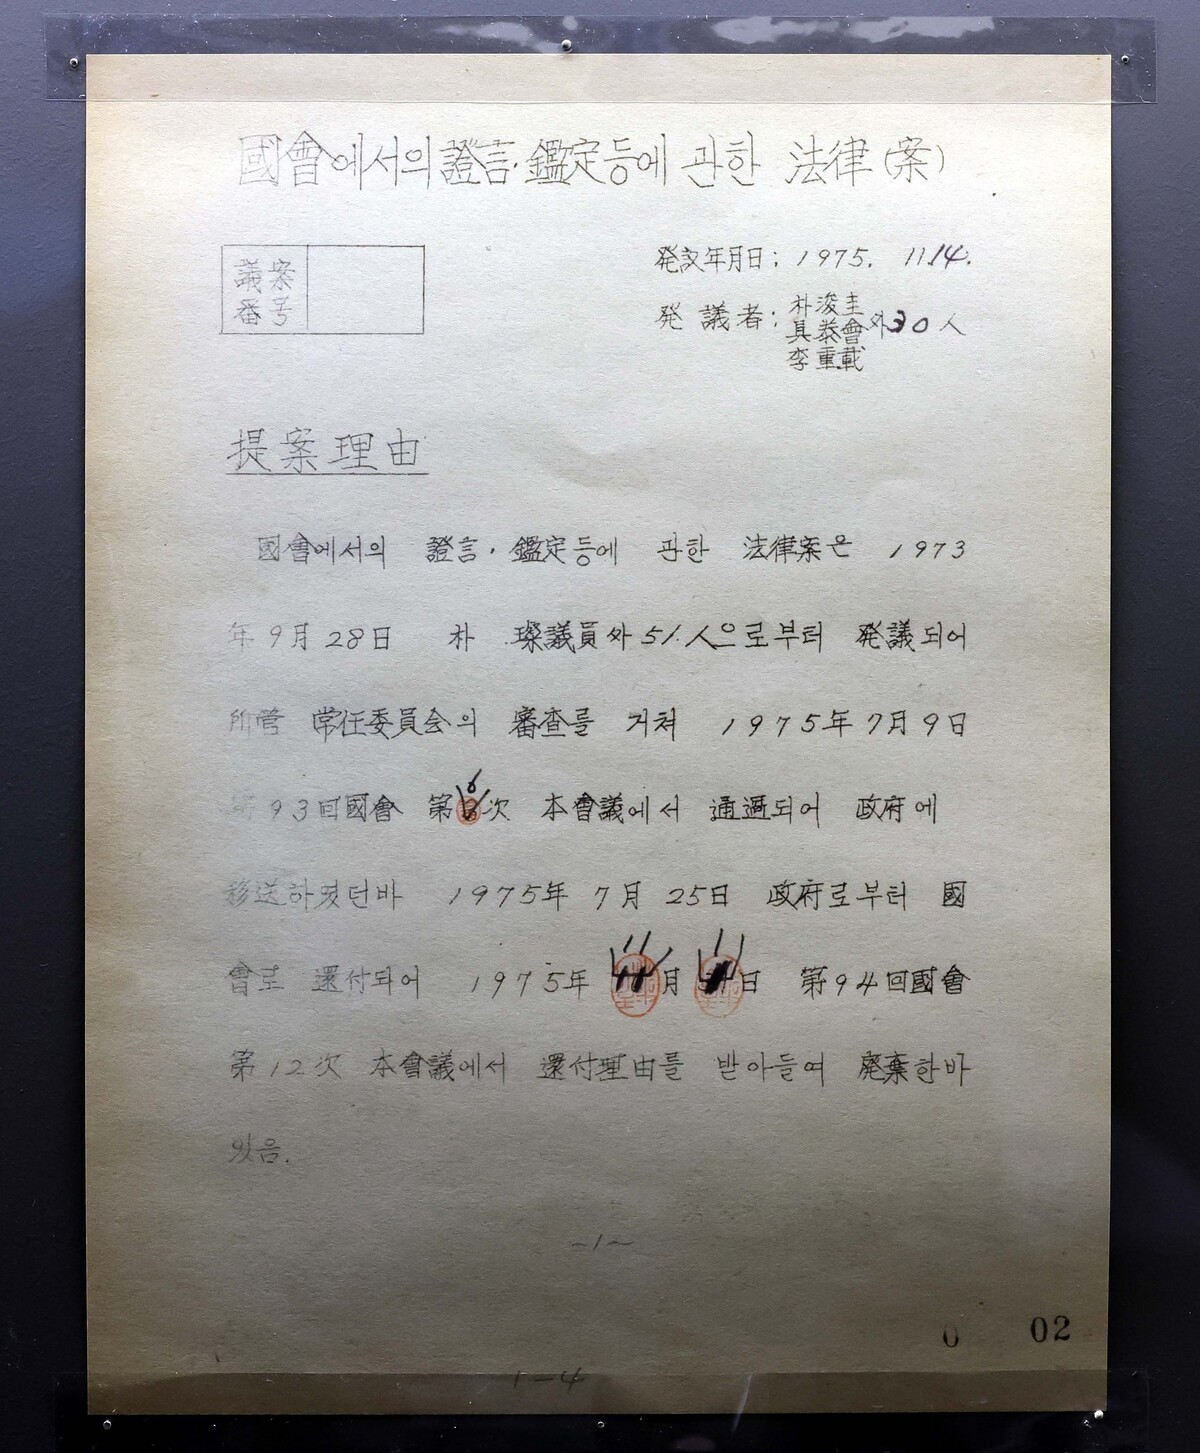 國會에서의 證言·鑑定등에 관한 法律(案)
議案
番号
発议年月日: 1975. 11.14.
発議者: 朴浚圭
具泰會 外30人
李重載
提案理由
國會에서의 證言·鑑定등에 관한 法律案은 1973
年 9月 28日 朴 璨議員外 51人으로부터 発議되어
所管 常任委員会의 審査를 거쳐 1975年 7月 9日
第93回國會 第6次 本會議에서 通過되어 政府에
移送하였던바 1975年 7月 25日 政府로부터 國
會로 還付되어 1975年 11月 11日 第94回國會
第12次 本會議에서 還付理由를 받아들여 廃棄한바
있음.
-1-
0 02
1-4